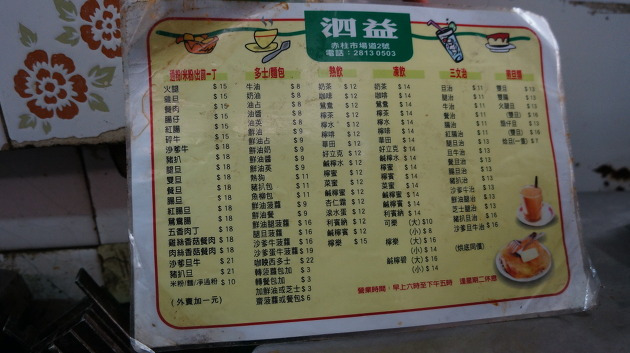 泗益
赤柱市場道2號
電話：2813 0503
多士/麵包
熱飲
凍飲
三文治
火腿 $ 15
雞旦 $ 15
餐肉 $ 15
腸仔 $ 15
紅腸 $ 15
碎牛 $ 15
沙爹牛 $ 18
豬扒 $ 18
腿旦 $ 18
雙旦 $ 18
餐旦 $ 18
腸旦 $ 18
紅腸旦 $ 18
鴛鴦腸 $ 18
五香肉丁 $ 18
雞絲香菇餐肉 $ 18
肉絲香菇餐肉 $ 18
沙爹旦牛 $ 21
豬扒旦 $ 21
米粉/麵/淨過膽 $ 10
(外賣加一元)
牛油 $ 8
奶油 $ 8
油占 $ 8
油醬 $ 8
油英 $ 8
鮮油 $ 9
鮮油占 $ 9
鮮油奶 $ 9
鮮油醬 $ 9
鮮油英 $ 9
熱狗 $ 9
豬扒包 $ 11
魚柳包 $ 11
鮮油菠蘿 $ 9
鮮油餐 $ 9
鮮油腿菠蘿 $ 16
腿旦菠蘿 $ 16
沙爹牛菠蘿 $ 16
沙爹旦牛菠蘿 $ 19
咖喱西多士 $ 22
轉菠蘿包加 $ 3
轉餐包加 $ 3
加鮮油或芝士 $ 3
齋菠蘿或餐包 $ 6
奶茶 $ 12
咖啡 $ 12
鴛鴦 $ 12
檸茶 $ 12
檸水 $ 12
檸啡 $ 12
華田 $ 12
好立克 $ 12
鹹檸水 $ 12
檸蜜 $ 12
菜蜜 $ 12
鹹檸蜜 $ 12
杏仁霜 $ 12
滾水蛋 $ 12
利賓納 $ 12
鹹檸賓 $ 12
檸樂 $ 15
奶茶 $ 14
咖啡 $ 14
鴛鴦 $ 14
檸茶 $ 14
檸水 $ 14
檸啡 $ 14
華田 $ 14
好立克 $ 14
鹹檸水 $ 14
檸蜜 $ 14
檸賓 $ 14
菜蜜 $ 14
鹹檸蜜 $ 14
鹹檸賓 $ 14
利賓納 $ 14
可樂 (大) $ 10
(小) $ 8
檸樂 (大) $ 16
(小) $ 14
鹹檸碧 (大) $ 16
(小) $ 14
旦治 $ 11
腿治 $ 11
牛治 $ 11
餐治 $ 11
腸治 $ 11
紅腸治 $ 11
腿旦治 $ 13
旦牛治 $ 13
餐旦治 $ 13
腸旦治 $ 13
豬扒治 $ 13
沙爹牛治 $ 13
鮮油腿治 $ 13
芝士腿治 $ 13
豬扒旦治 $ 16
沙爹旦牛治 $ 16
(烘底同價)
營業時間：早上六時至下午五時 逢星期二休息